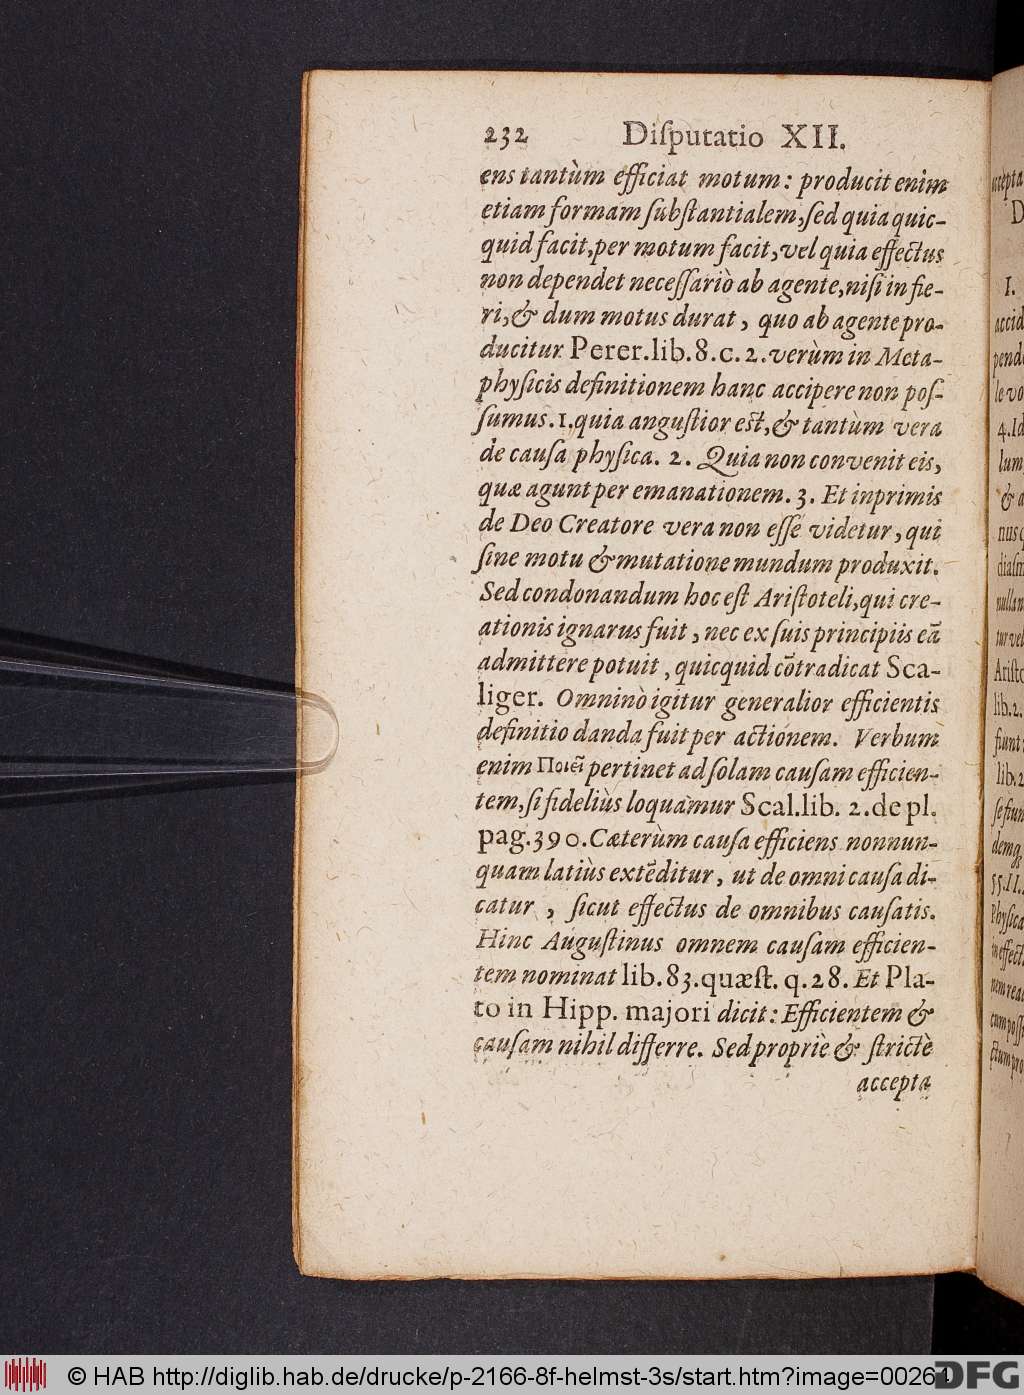 232 Diſputatio XII.
ens tantùm efficiat motum: producit enim
etiam formam ſubſtantialem, ſed quia quic-
quid facit, per motum facit, vel quia effectus
non dependet neceſſariò ab agente, niſi in fie-
ri, & dum motus durat, quo ab agente pro-
ducitur Perer. lib. 8. c. 2. verùm in Meta-
phyſicis definitionem hanc accipere non poſ-
ſumus. 1. quia anguſtior eſt, & tantùm vera
de cauſa phyſica. 2. Quia non convenit eis,
quæ agunt per emanationem. 3. Et inprimis
de Deo Creatore vera non eſſe videtur, qui
ſine motu & mutatione mundum produxit.
Sed condonandum hoc eſt Ariſtoteli, qui cre-
ationis ignarus fuit, nec ex ſuis principiis eā
admittere potuit, quicquid cōtradicat Sca-
liger. Omninò igitur generalior efficientis
definitio danda fuit per actionem. Verbum
enim Ποιεῖ pertinet ad ſolam cauſam efficien-
tem, ſi fideliùs loquamur Scal. lib. 2. de pl.
pag. 390. Cæterùm cauſa efficiens nonnun-
quam latiùs extēditur, ut de omni cauſa di-
catur, ſicut effectus de omnibus cauſatis.
Hinc Auguſtinus omnem cauſam efficien-
tem nominat lib. 83. quæſt. q. 28. Et Pla-
to in Hipp. majori dicit: Efficientem &
cauſam nihil differre. Sed propriè & ſtrictè
accepta
© HAB http://diglib.hab.de/drucke/p-2166-8f-helmst-3s/start.htm?image=00264
DFG